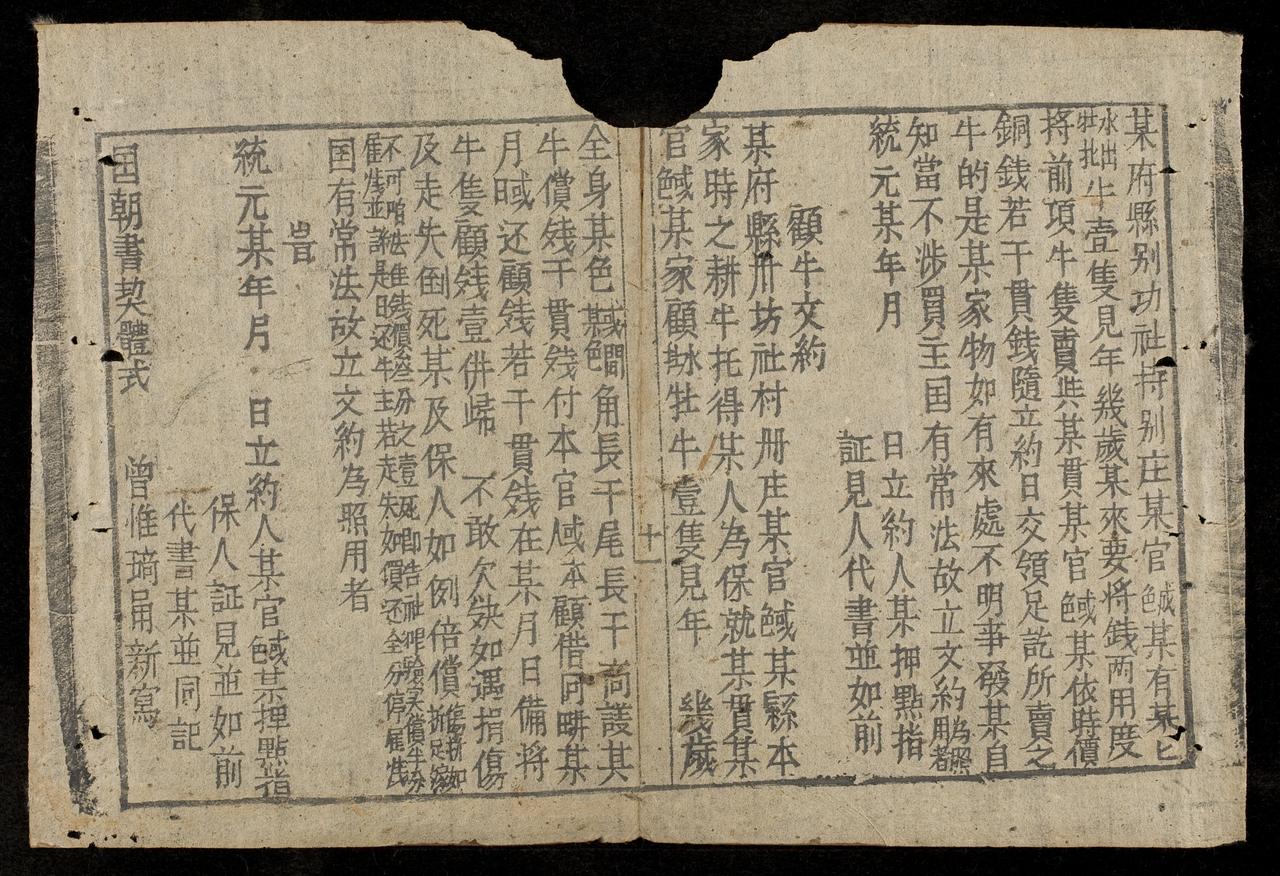 某府縣别功社特别庄某官𢧐某有某匕
水出牡牝牛壹隻見年幾歲某來要将錢両用度
将前項牛隻賣與某貫某官𢧐某依時價
銅錢若干貫錢隨立約日交領足訖所賣之
牛的是某家物如有來處不明事發某自
知當不渉買主囯有常法故立文約為照用者
統元某年月 日立約人某押點指
証見人代書並如前
顧牛文約
某府縣卅坊社村册庄某官某縣本
家時之耕牛托得某人為保就某貫某
官某家顧牡牛壹隻見年 幾歲
全身某色或間某色角長干尾長干尚護其
牛償錢干貫錢付本官或本顧借囘畊某
月或还顧錢若干貫錢在某月日備将
牛隻顧錢壹併歸 不敢欠缺如遇損傷
及走失倒死某及保人如例倍償
不可咱去雇並許是日还牛主若走失如價还全分停雇
囯有常法故立文約為照用者
旹
統元某年月 日立約人某官某押點指
保人証見並如前
代書某並同記
囯朝書契體式 曾惟甬新寫
十